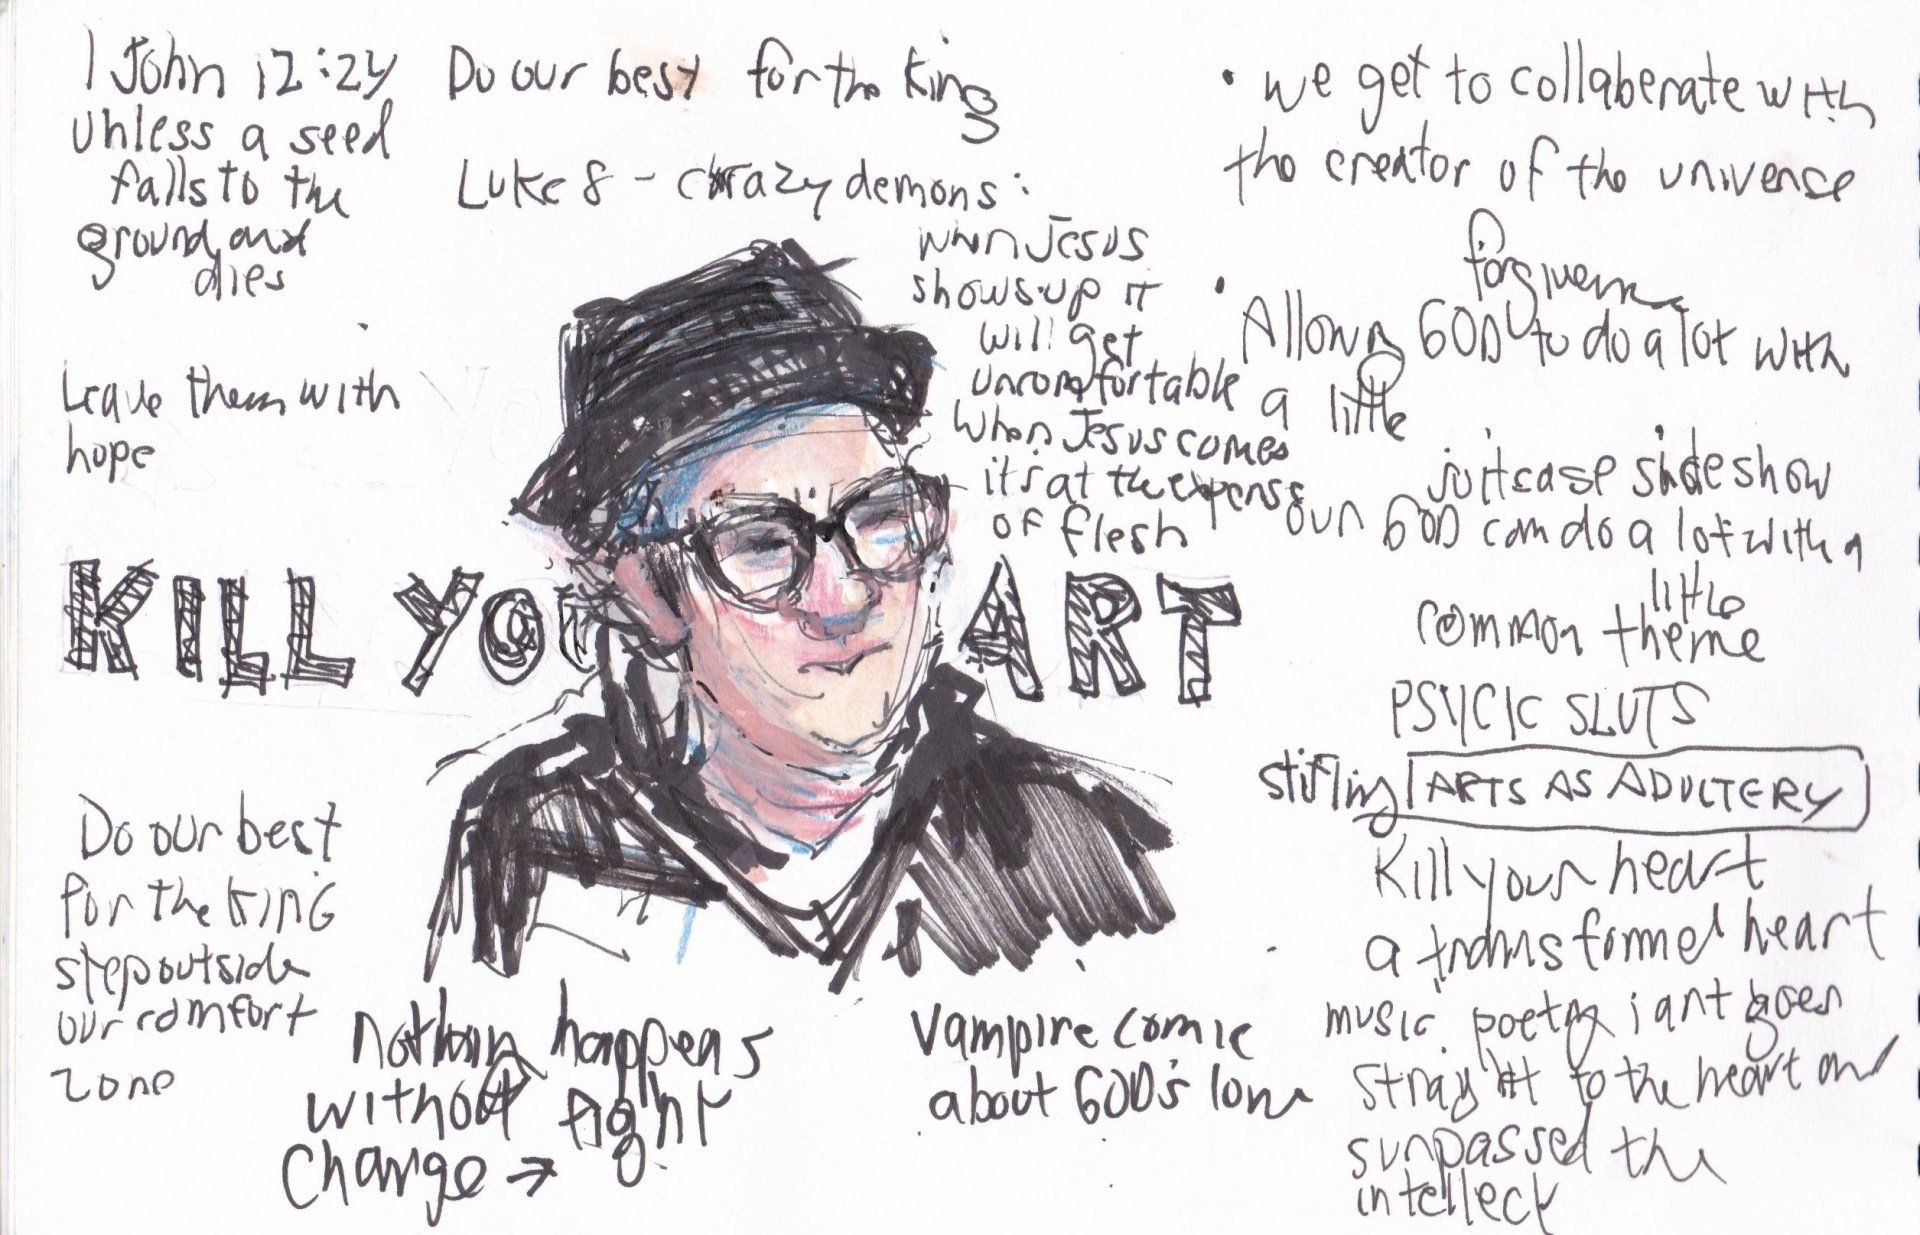 1 John 12:24
unless a seed
falls to the
ground and
dies
Leave them with
hope
Do our best for the King
Luke 8 - crazy demons:
when Jesus
shows up it
will get
uncomfortable
when Jesus comes
it's at the expense
of flesh
• we get to collaberate with
the creator of the universe
• Allowing GOD to do a lot with
a little
suitcase sideshow
our GOD can do a lot with a
little
common theme
PSYCIC SLUTS
stifling ARTS AS ADULTERY
Kill your heart
a transformed heart
music, poetry, art goes
straight to the heart and
surpassed the
intelleck
KILL YOUR ART
Do our best
for the KING
step outside
our comfort
zone
nothing happens
without fight
change →
Vampire comic
about GOD's love